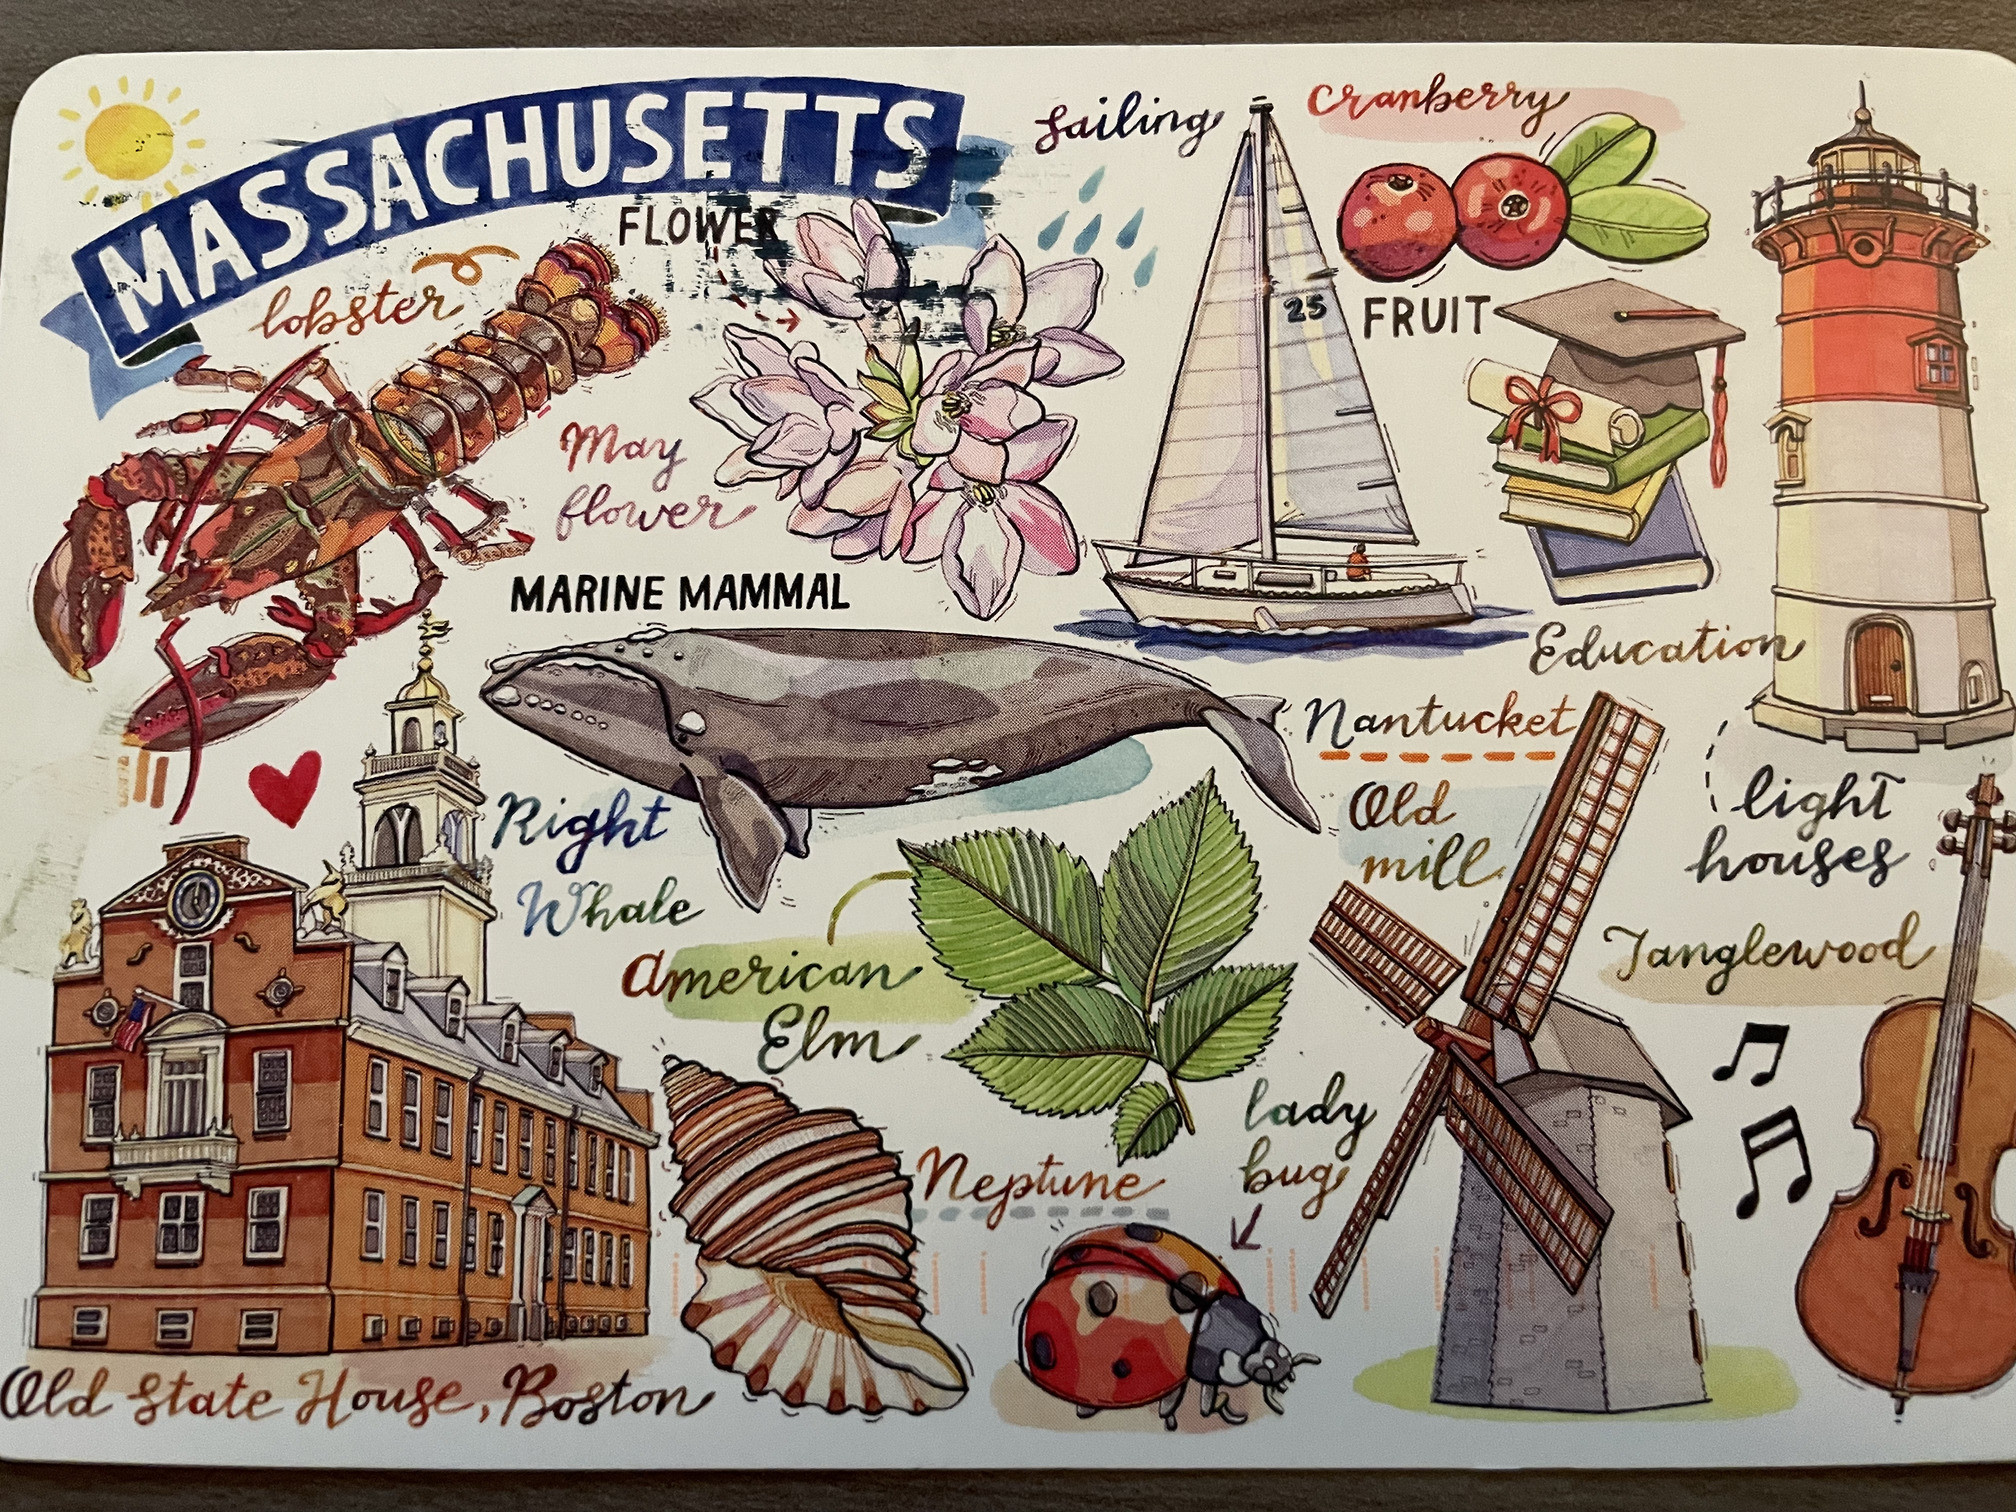 MASSACHUSETTS
sailing
cranberry
FLOWER
lobster
25
FRUIT
May
flower
MARINE MAMMAL
Education
Nantucket
Old
mill
light
houses
Right
Whale
Tanglewood
American
Elm
lady
bug
Neptune
Old State House, Boston